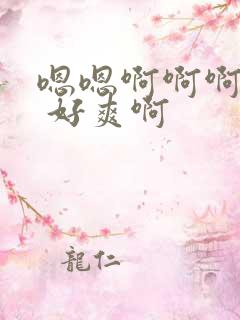 嗯嗯啊啊啊
好爽啊
龍仁